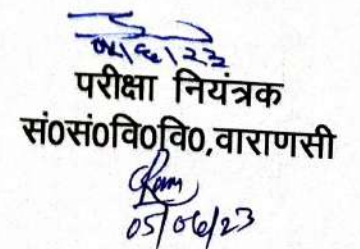 परीक्षा नियंत्रक
सं0सं0वि0वि0,वाराणसी
05/06/23